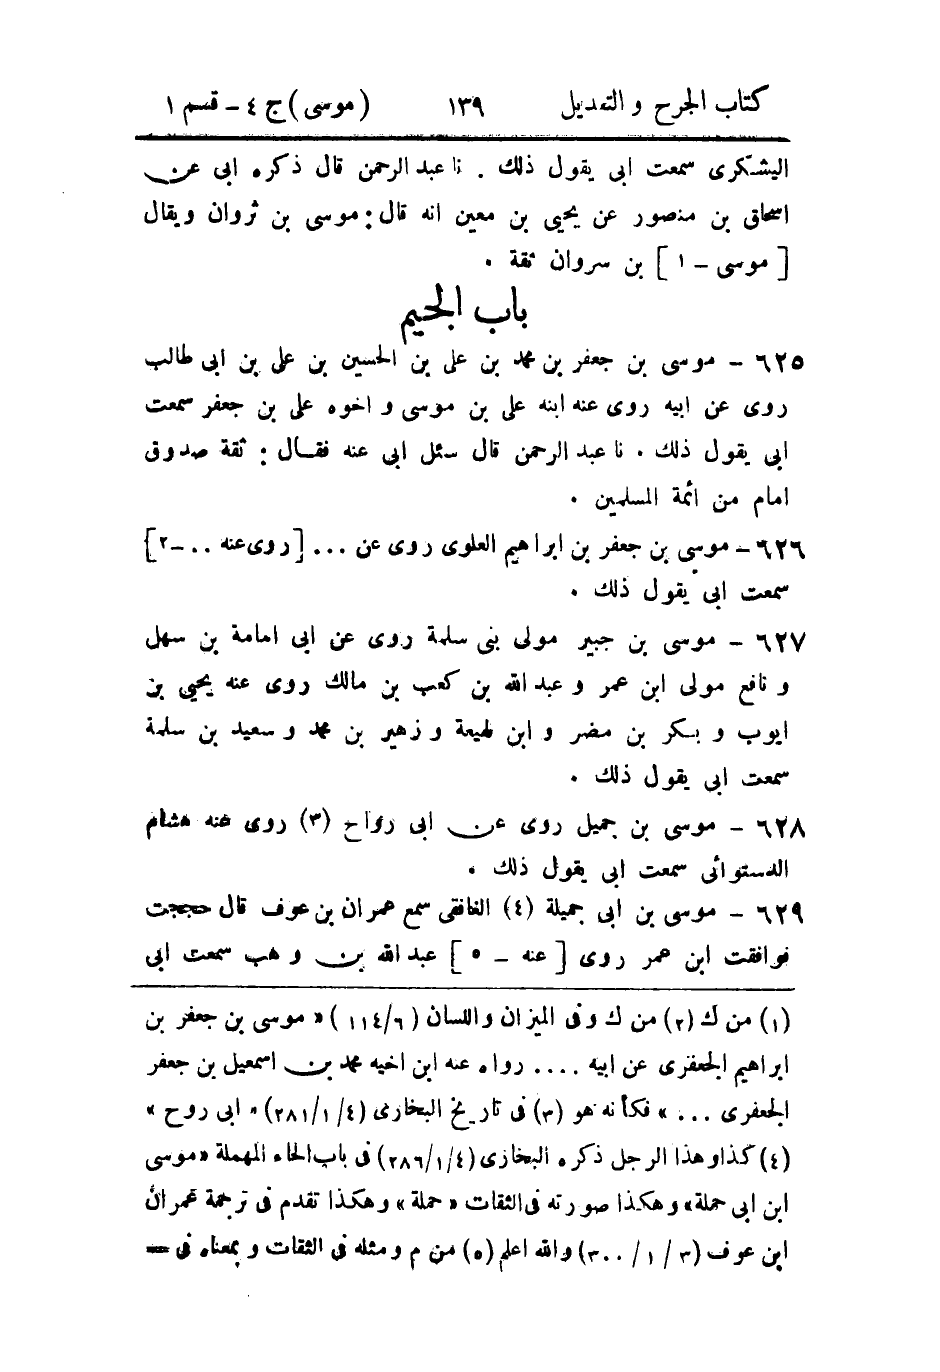 كتاب الجرح و التعديل ١٣٩ (موسى) ج ٤ - قسم ١
اليشكرى سمعت ابى يقول ذلك . نا عبد الرحمن قال ذكره ابى عن
اسحاق بن منصور عن يحيى بن معين انه قال : موسى بن ثروان ويقال
[ موسى - ١ ] بن سروان ثقة .
باب الجيم
٦٢٥ - موسى بن جعفر بن محمد بن على بن الحسين بن على بن ابى طالب
روى عن ابيه روى عنه ابنه على بن موسى و اخوه على بن جعفر سمعت
ابى يقول ذلك . نا عبد الرحمن قال سئل ابى عنه فقال : ثقة صدوق
امام من ائمة المسلمين .
٦٢٦ - موسى بن جعفر بن ابراهيم العلوى روى عن ... [ روى عنه .. - ٢ ]
سمعت ابى يقول ذلك .
٦٢٧ - موسى بن جبير مولى بنى سلمة روى عن ابى امامة بن سهل
و نافع مولى ابن عمر و عبد الله بن كعب بن مالك روى عنه يحيى بن
ايوب و بكر بن مضر و ابن لهيعة و زهير بن محمد و سعيد بن سلمة
سمعت ابى يقول ذلك .
٦٢٨ - موسى بن جميل روى عن ابى رواح (٣) روى عنه هشام
الدستوائى سمعت ابى يقول ذلك .
٦٢٩ - موسى بن ابى جميلة (٤) الغافقى سمع عمران بن عوف قال حججت
فوافقت ابن عمر روى [ عنه - ٥ ] عبد الله بن و هب سمعت ابى
(١) من ك (٢) من ك وفى الميزان واللسان ( ٦/ ١١٤ ) « موسى بن جعفر بن
ابراهيم الجعفرى عن ابيه .... رواه عنه ابن اخيه محمد بن اسمعيل بن جعفر
الجعفرى ... » فكأنه هو (٣) فى تاريخ البخارى (٤/ ١/ ٢٨١) « ابى روح »
(٤) كذا وهذا الرجل ذكره البخارى (٤/ ١/ ٢٨٦) فى باب الحاء المهملة « موسى
ابن ابى حملة» وهكذا صورته فى الثقات « حملة » وهكذا تقدم فى ترجمة عمران
ابن عوف (٣ / ١ / ٣٠٠) والله اعلم (٥) من م ومثله فى الثقات و بمعناه فى =